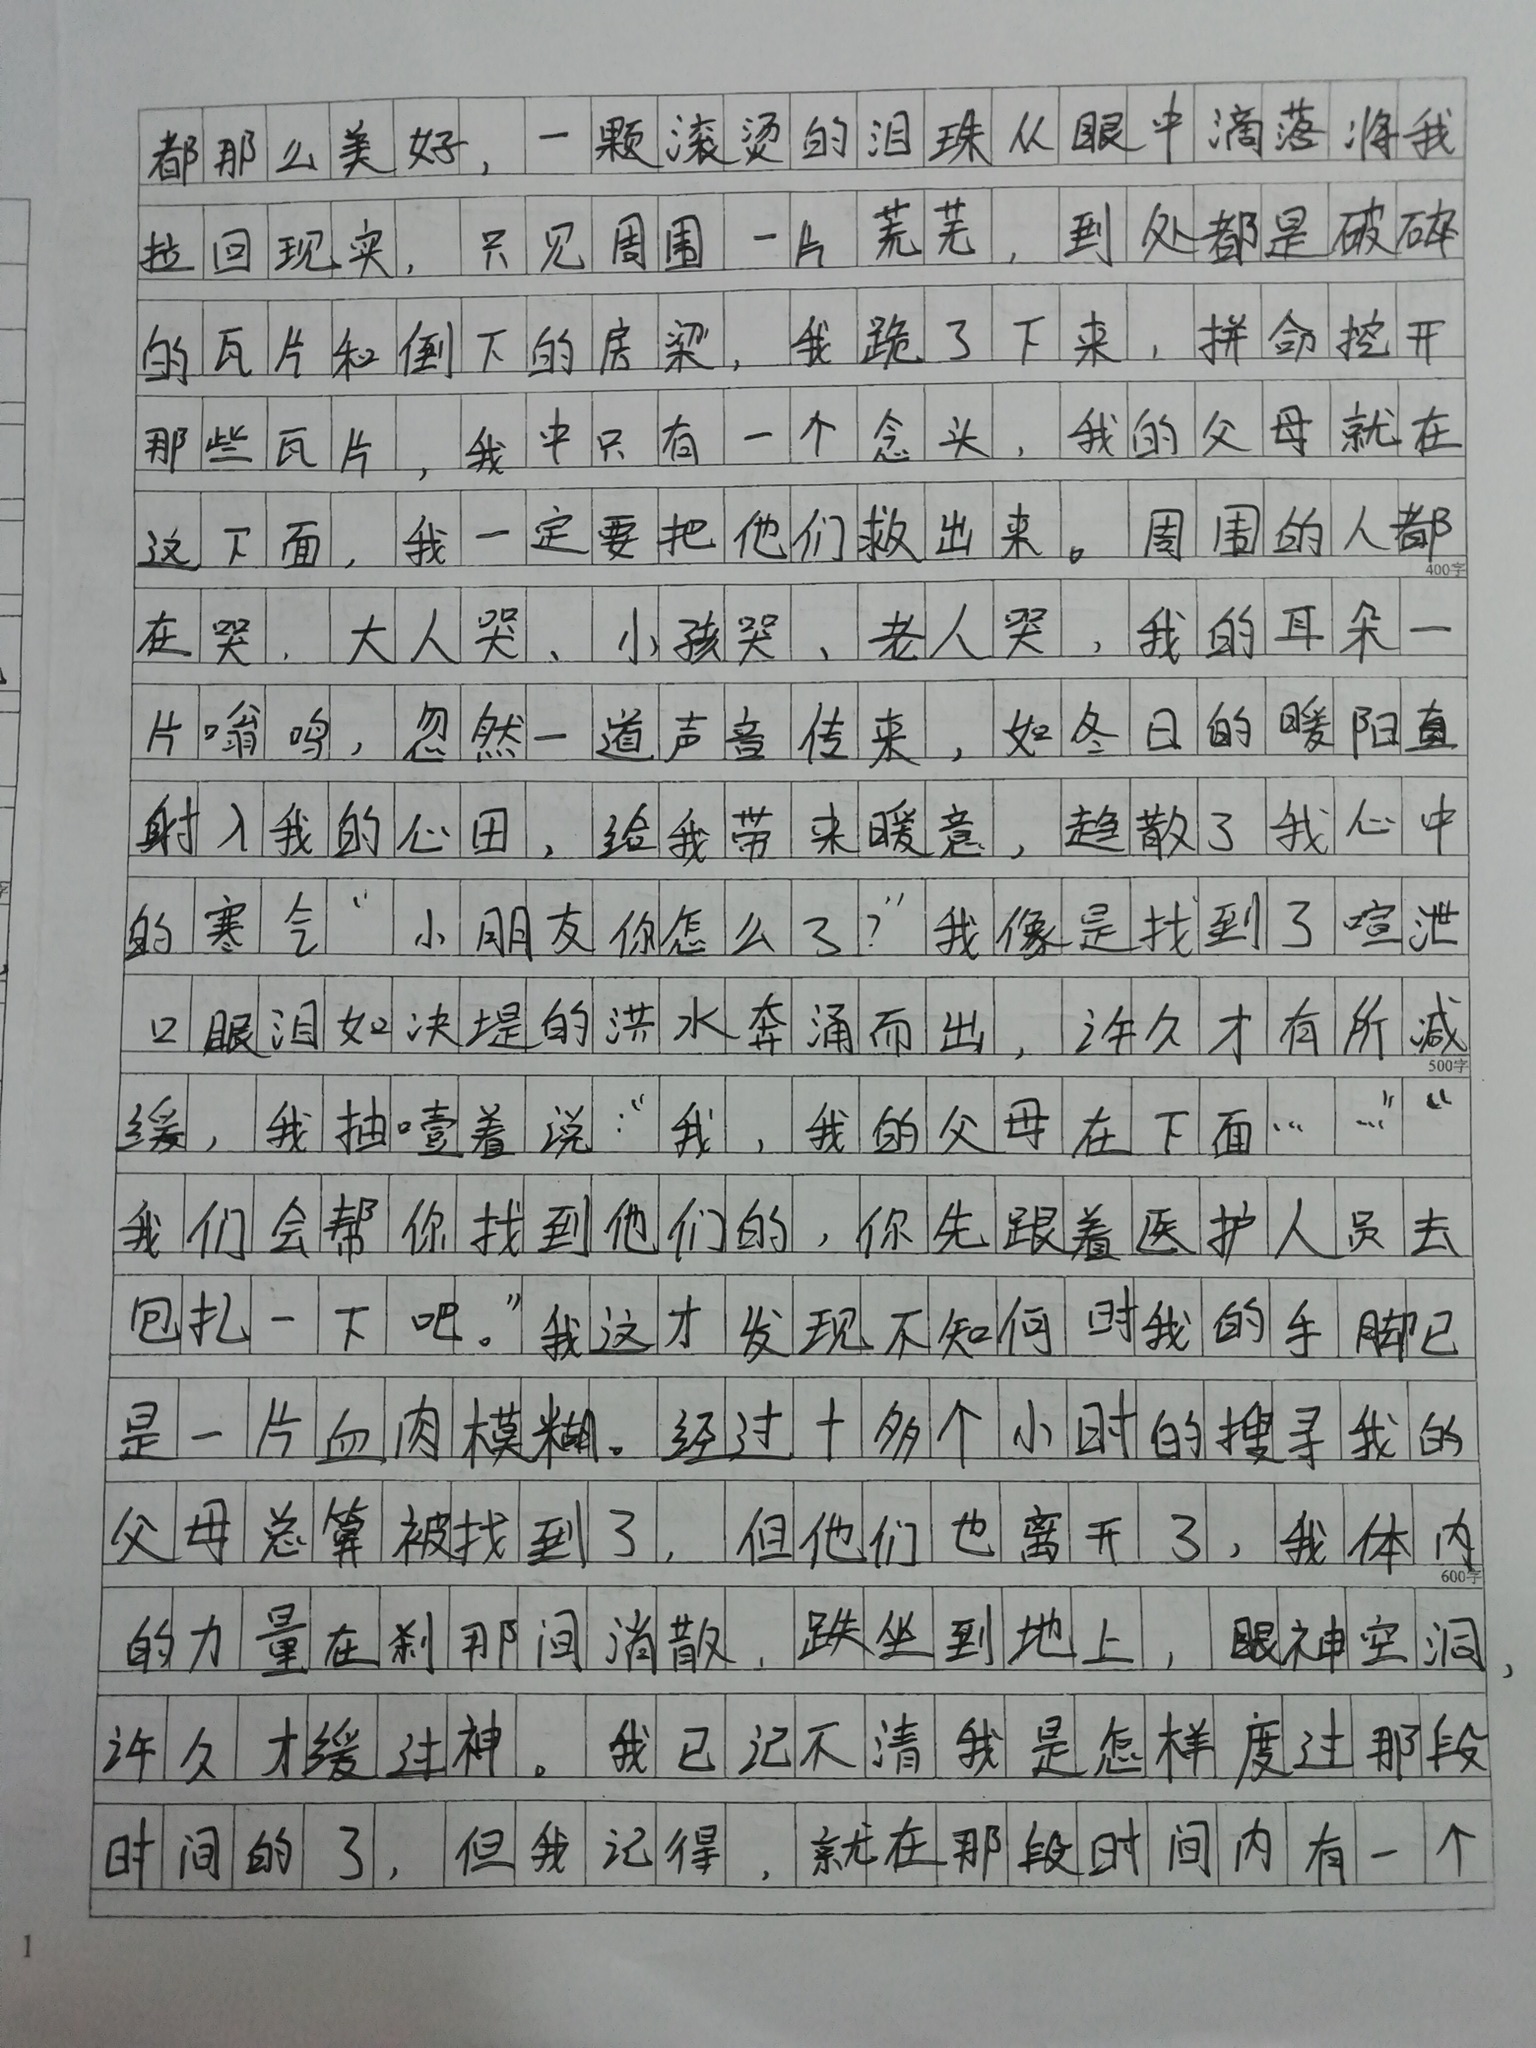 都那么美好，一颗滚烫的泪珠从眼中滴落将我
拉回现实，只见周围一片荒芜，到处都是破碎
的瓦片和倒下的房梁，我跪了下来，拼命挖开
那些瓦片，我中只有一个念头，我的父母就在
这下面，我一定要把他们救出来。周围的人都
400字
在哭，大人哭、小孩哭、老人哭，我的耳朵一
片嗡鸣，忽然一道声音传来，如冬日的暖阳直
射入我的心田，给我带来暖意，趋散了我心中
的寒气“小朋友你怎么了？”我像是找到了喧泄
口眼泪如决堤的洪水奔涌而出，许久才有所减
500字
缓，我抽噎着说：“我，我的父母在下面……”“
我们会帮你找到他们的，你先跟着医护人员去
包扎一下吧。”我这才发现不知何时我的手脚已
是一片血肉模糊。经过十多个小时的搜寻我的
父母总算被找到了，但他们也离开了，我体内
600字
的力量在刹那间消散，跌坐到地上，眼神空洞，
许久才缓过神。我已记不清我是怎样度过那段
时间的了，但我记得，就在那段时间内有一个
1